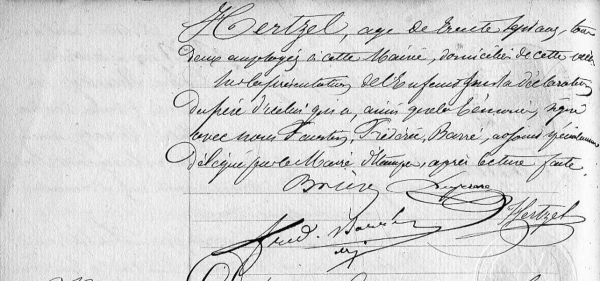 Hertzel, agé de trente sept ans, tous
deux employés à cette Mairie, domiciliés de cette ville
sur la présentation de l'Enfant et sur la déclaration
du père d'icelui qui a, ainsi que les témoins, signé
avec nous Faustin, Frédéric, Barré, adjoint spécialement
délégué par le Maire d'Étampes, après lecture faite.
Hertzel
fred. Barré
adj